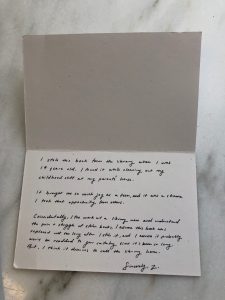 I stole this book from the library when I was
14 years old. I found it while clearing out my
childhood stuff at my parents' house.
It brought me so much joy as a teen, and it was a shame
I took that opportunity from others.
Coincidentally, I too work at a library now and understand
the pain & struggle of stolen books. I assume this book was
replaced not too long after I stole it, and I assume it probably
won't be re-added to your catalog, since it's been so long.
But, I think it deserves to call the library home.
Sincerely, Z